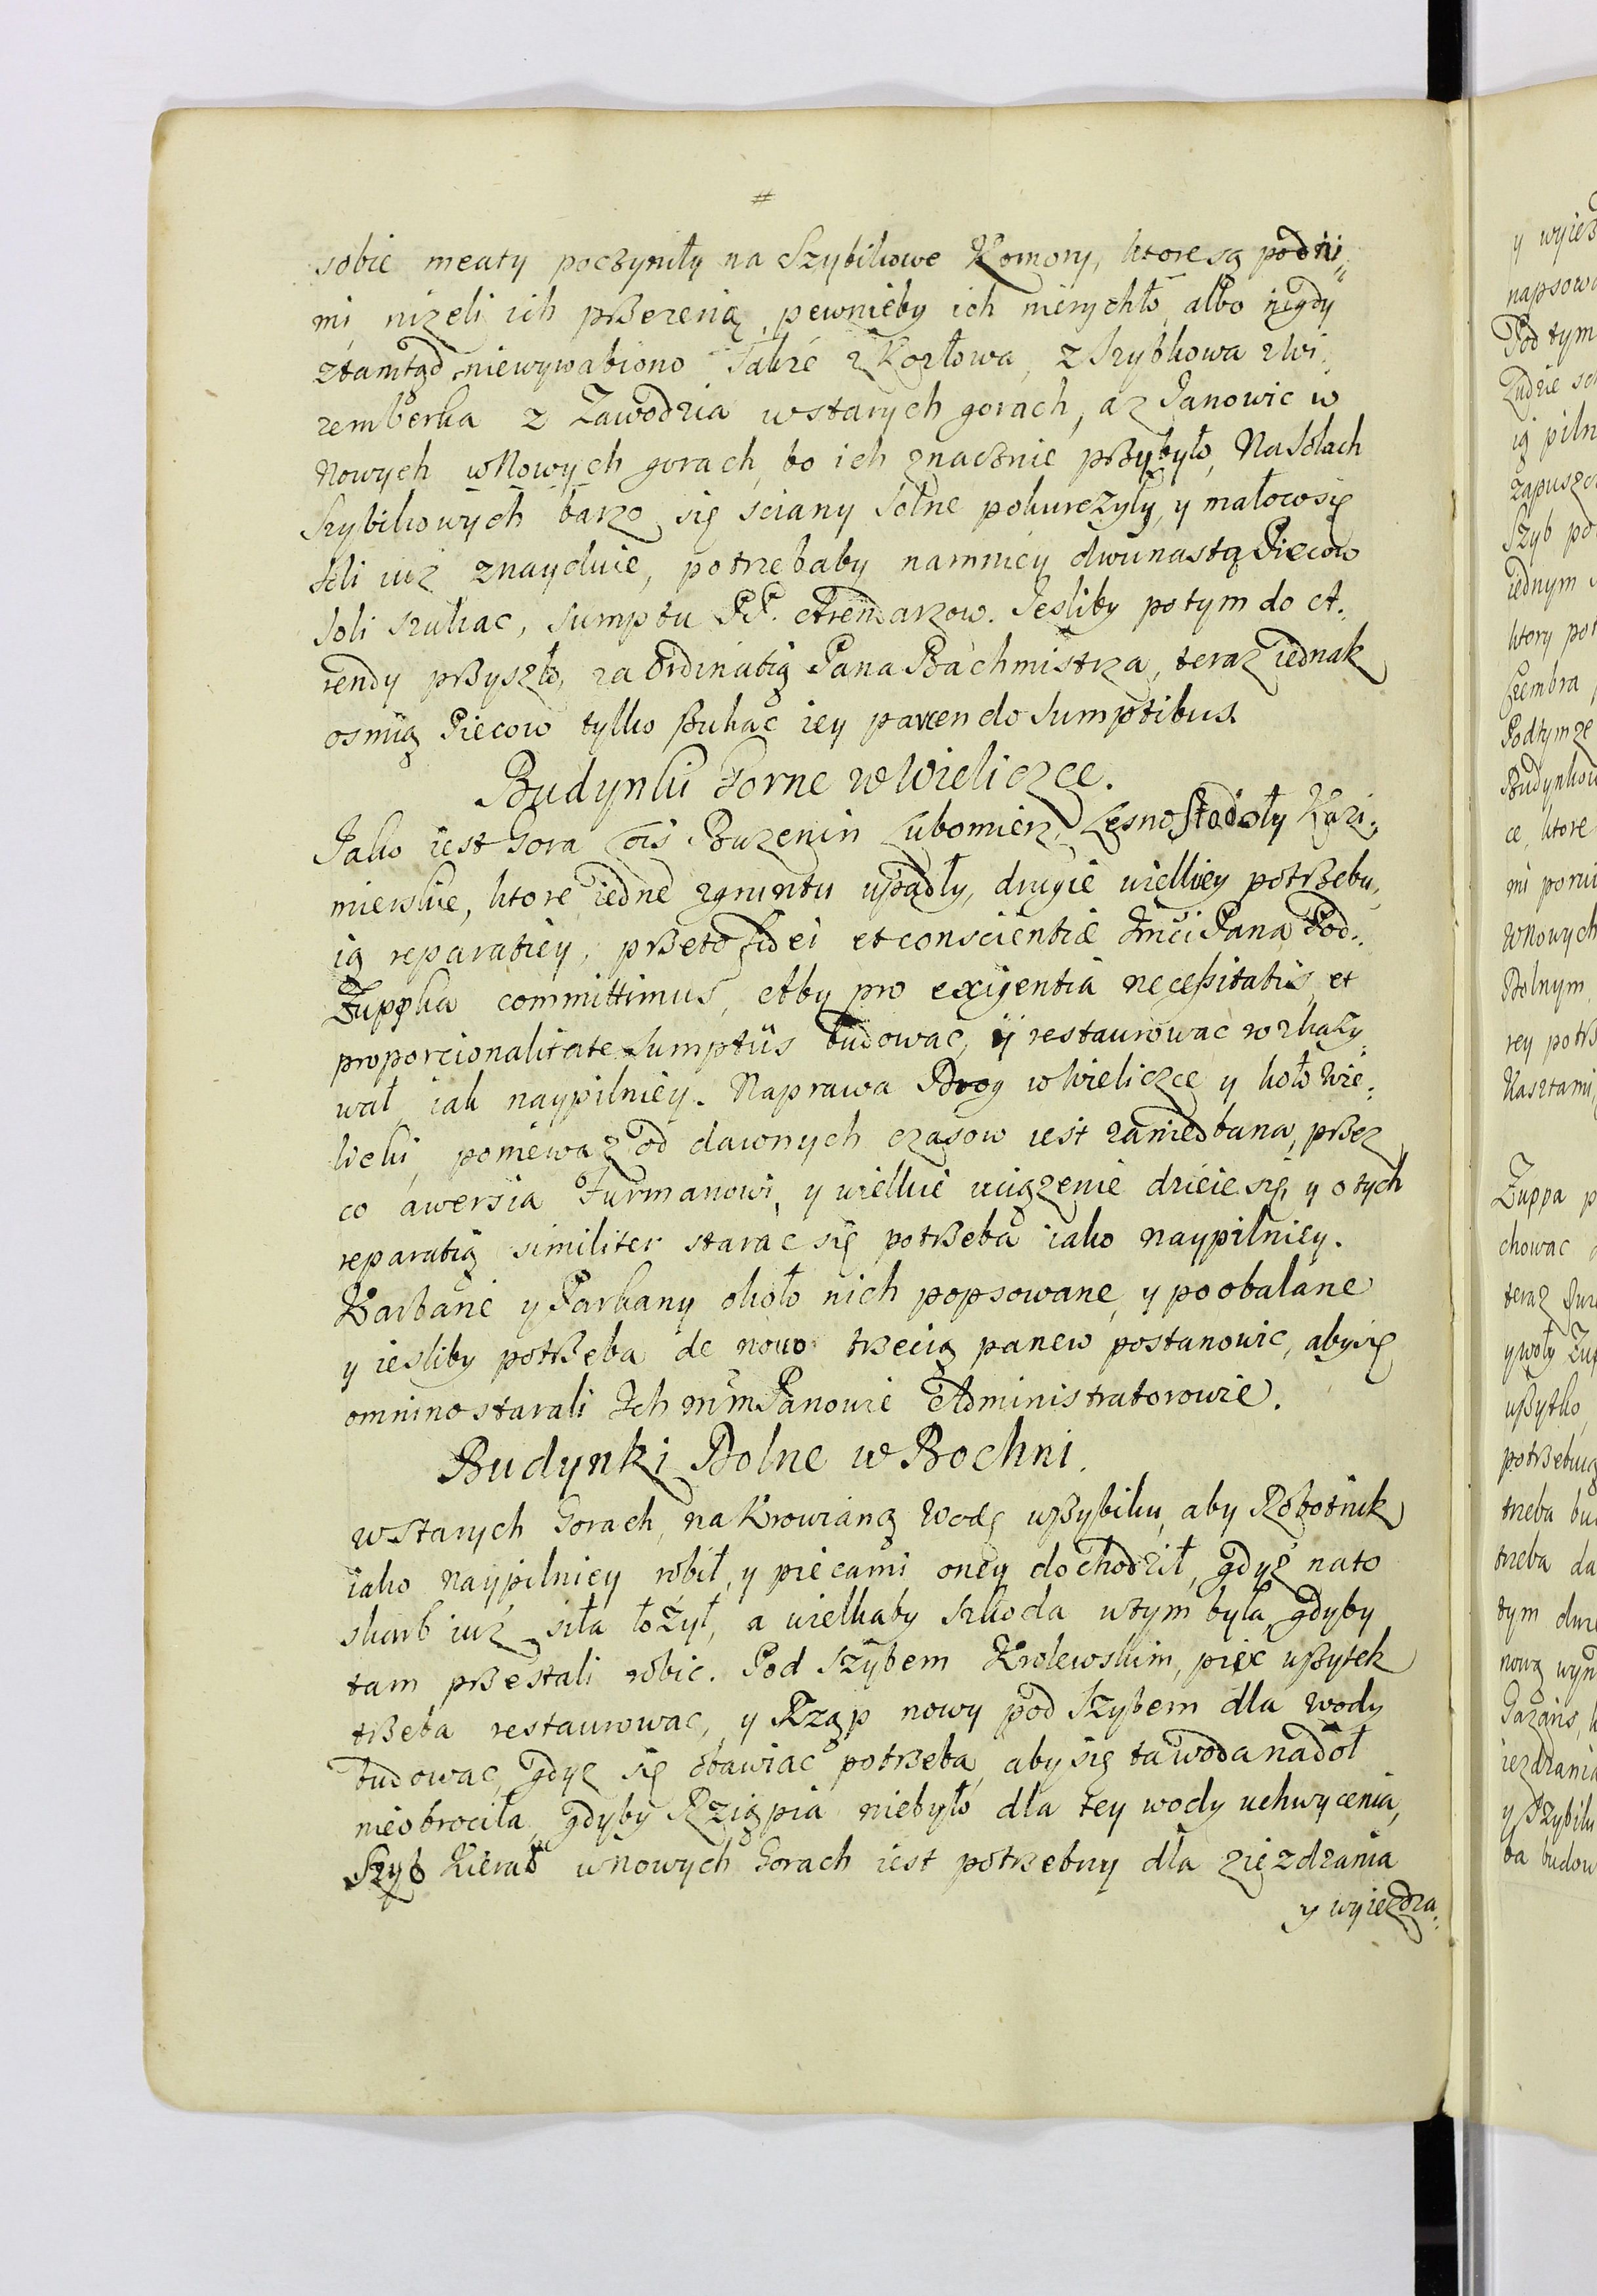 #
sobie meaty poczyniły na Szybikowe Komory, ktore są podni„
mi, nizeli ich przerzną, pewnieby ich nierychło, albo nigdy
ztamtąd niewywabiono Takze z Kozłowa, z Szybkowa z Wi„
zemberka z Zawodzia wstarych gorach, a z Janowic w
Nowych wNowych gorach, bo ich znacznie przybyło, Na Solach
Szybikowych barzo się sciany Solne pokurczyły, y małocosię
Soli iuz znayduie, potrzebaby namniey dwunastą Piecow
Soli szukac, Sumptu PP. Arendarzow. Jesliby potym do A„
rendy przyszło, za Ordinatią Pana Bachmistrza, teraz iednak
osmią Piecow tylko szukac iey parcendo Sumptibus.
Budynki Gorne w Wieliczce.
Jako iest Gora Buzenin Lubomierz, Lesno Stodoły Kazi„
mierskie, ktore iedne zgruntu upadły, drugie wielkiey potrzebu„
ią reparatiey, przeto fidei et conscientiæ Jmci Pana Pod„
Zuppka committimus, Aby pro exigentia necessitatis, et
proporcionalitate Sumptus budowac, y restaurowac rozkazy„
wał iak naypilniey. Naprawa Drog w Wieliczce y koło Wie„
liczki, poniewaz od dawnych czasow iest zaniedbana, przez
co awersia Furmanowi, y wielkie uciązenie dzieie się, y o tych
reparatią similiter starac się potrzeba iako naypilniey.
Karbarie y Parkany około nich popsowane, y poobalane
y iesliby potrzeba de novo trzecią panew postanowic, abysię
omnino starali Ich mm Panowie Administratorowie.
Budynki Dolne w Bochni.
wStarych Gorach, na Krowianą Wodę uszybiku, aby Robotnik
iako naypilniey robił, y piecami oney dochodził, gdyz nato
skarb iuz siła łozył, a wielkaby szkoda wtym była, gdyby
tam przestali robic. Pod Szybem Krolewskim, piec wszytek
trzeba restaurowac, y Rząp nowy pod Szybem dla wody
budowac, gdyz się obawiac potrzeba, aby się ta woda nadoł
nieobrociła, gdyby Rząpia niebyło dla tey wody uchwycenia,
Szyb Kierat wNowych Gorach iest potrzebny dla ziezdzania
y wyiezdza„
y wyiez
napsowa
Pod tym
Ludzie sc
ią piln
zapuszcz
Szyb po
iednym
ktory pot
Cembra
Podtymze
Budynkow
ce, ktore
mi porui
wNowych
Dolnym
rey potrz
Kasztami,
Zuppa p
chowac
teraz
y woły Zup
wszytko,
potrzebuią
trzeba bu
trzeba da
tym dwa
nową wyn
iezdzania
y Szybiku
ba budow